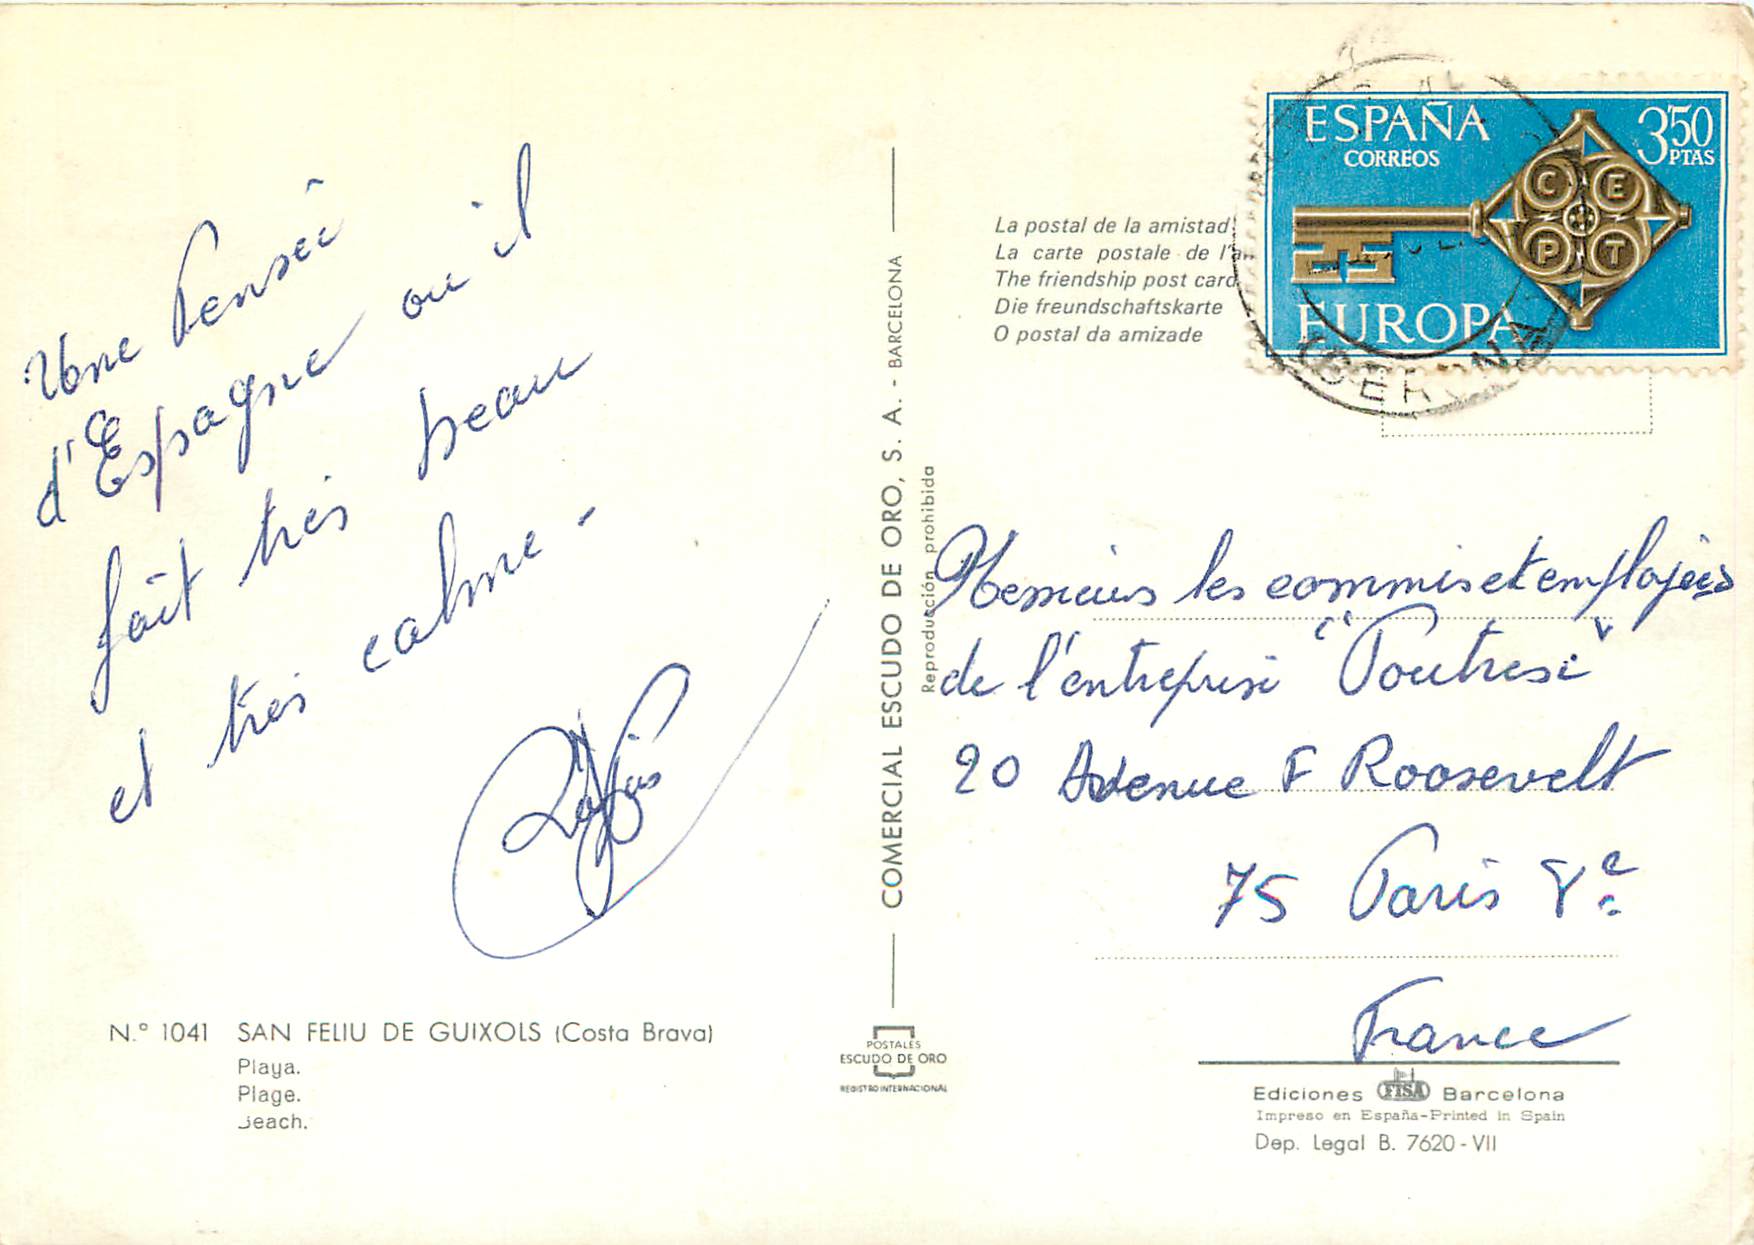 Une Pensée
d'Espagne ou il
fait très beau
et très calme -
N.º 1041 SAN FELIU DE GUIXOLS (Costa Brava)
Playa.
Plage.
Beach.
COMERCIAL ESCUDO DE ORO, S. A. - BARCELONA
Reproducción prohibida
POSTALES
ESCUDO DE ORO
REGISTRO INTERNACIONAL
La postal de la amistad
La carte postale de l'a
The friendship post card
Die freundschaftskarte
O postal da amizade
ESPAÑA
CORREOS
3'50
PTAS
C E
P T
EUROPA
(GERONA)
Messieurs les commis et employés
de l'entreprise "Poutresi"
20 Avenue F Roosevelt
75 Paris 8e
France
Ediciones FISA Barcelona
Impreso en España-Printed in Spain
Dep. Legal B. 7620-VII